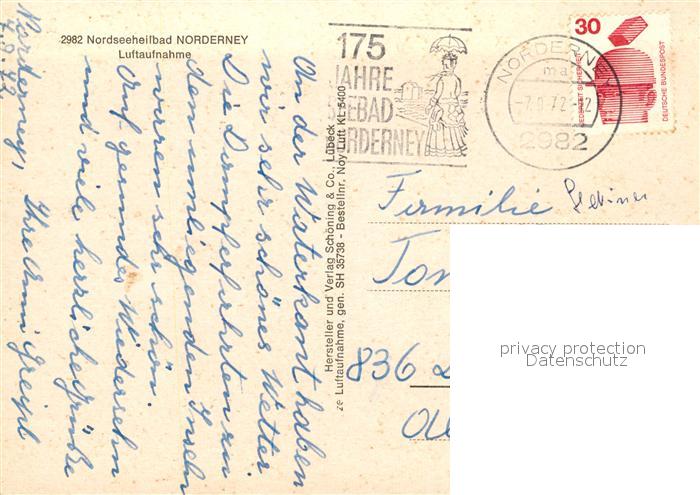 2982 Nordseeheilbad NORDERNEY
Luftaufnahme
175
JAHRE
SEEBAD
NORDERNEY
NORDERNEY
ma
-7.9.72-12
2982
30
JEDERZEIT SICHERHEIT
DEUTSCHE BUNDESPOST
Norderney,
7.9.72
An der Waterkant haben
wir sehr schönes Wetter.
Die Dampferfahrten zu
den umliegenden Inseln
waren sehr schön.
Auf gesundes Wiedersehn
und viele herzliche Grüße
Ihre Anni Greipl
Hersteller und Verlag Schöning & Co., Lübeck
Luftaufnahme, gen. SH 35738 - Bestellnr. Noy Luft KL 5400
Familie
836
privacy protection
Datenschutz